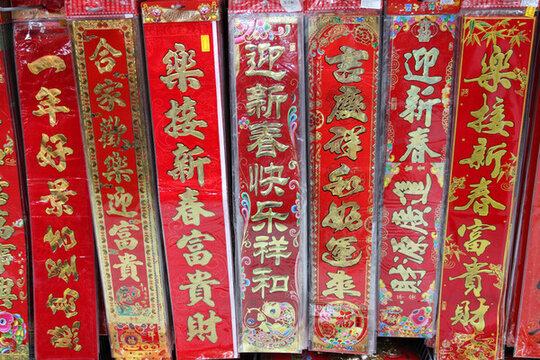 一年好景
合家歡樂迎富貴
樂接新春富貴財
迎新春快乐祥和
吉慶祥和好運來
迎新春
樂接新春富貴財